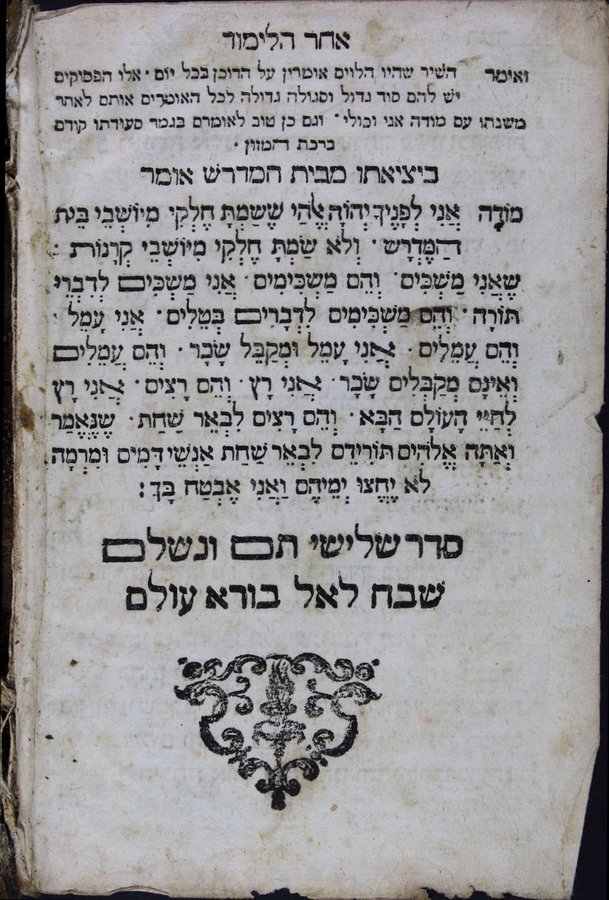 אחר הלימוד
ואומר השיר שהיו הלוים אומרין על הדוכן בכל יום · אלו הפסוקים
יש להם סוד גדול וסגולה גדולה לכל האומרים אותם לאחר
משנתו עם מודה אני וכולי · וגם כן טוב לאומרם בגמר סעודתו קודם
ברכת המזון ·
ביציאתו מבית המדרש אומר
מוֹדֶה אֲנִי לְפָנֶיךָ יְהוָֹה אֱלֹהַי שֶׁשַּׂמְתָּ חֶלְקִי מִיּוֹשְׁבֵי בֵּית
הַמִּדְרָשׁ · וְלֹא שַׂמְתָּ חֶלְקִי מִיּוֹשְׁבֵי קְרָנוֹת ·
שֶׁאֲנִי מַשְׁכִּים · וְהֵם מַשְׁכִּימִים · אֲנִי מַשְׁכִּים לְדִבְרֵי
תּוֹרָה · וְהֵם מַשְׁכִּימִים לִדְבָרִים בְּטֵלִים · אֲנִי עָמֵל ·
וְהֵם עֲמֵלִים · אֲנִי עָמֵל וּמְקַבֵּל שָׂכָר · וְהֵם עֲמֵלִים
וְאֵינָם מְקַבְּלִים שָׂכָר · אֲנִי רָץ · וְהֵם רָצִים · אֲנִי רָץ
לְחַיֵּי הָעוֹלָם הַבָּא · וְהֵם רָצִים לִבְאֵר שַׁחַת · שֶׁנֶּאֱמַר
וְאַתָּה אֱלֹהִים תּוֹרִידֵם לִבְאֵר שַׁחַת אַנְשֵׁי דָמִים וּמִרְמָה
לֹא יֶחֱצוּ יְמֵיהֶם וַאֲנִי אֶבְטַח בָּךְ :
סדר שלישי תם ונשלם
שבח לאל בורא עולם